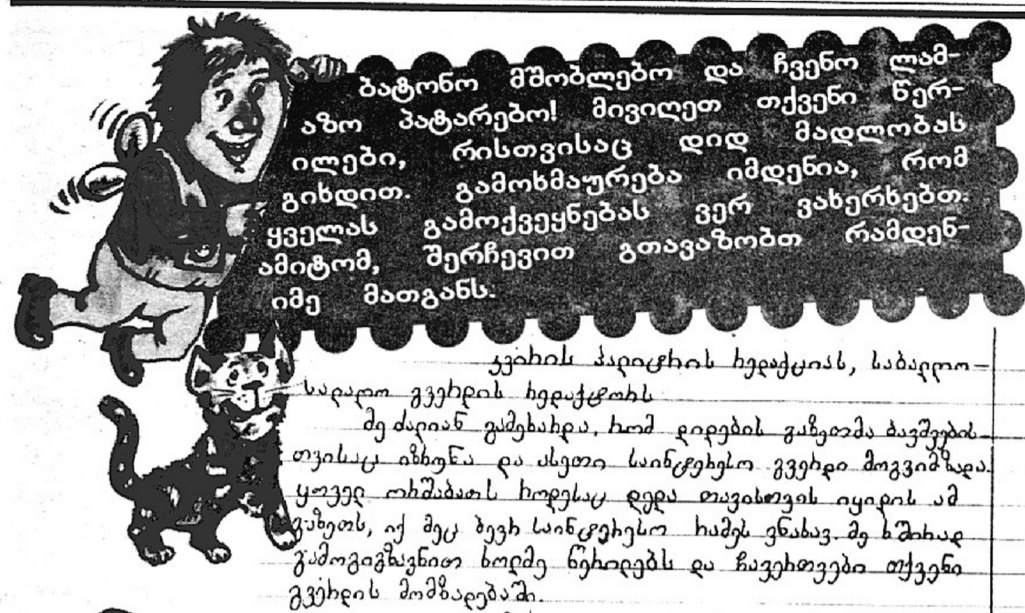 ბატონო მშობლებო და ჩვენო ლამ-
აზო პატარებო! მივიღეთ თქვენი წერ-
ილები, რისთვისაც დიდ მადლობას
გიხდით. გამოხმაურება იმდენია, რომ
ყველას გამოქვეყნებას ვერ ვახერხებთ.
ამიტომ, შერჩევით გთავაზობთ რამდენ-
იმე მათგანს.
კვირის პალიტრის რედაქციას, საბავშვო-
სალაღო გვერდის რედაქტორს
მე ძალიან გამეხარდა, რომ დიდების გაზეთმა ბავშვების-
თვისაც იზრუნა და ასეთი საინტერესო გვერდი მოგვიმზადა.
ყოველ ორშაბათს როდესაც დედა თავისთვის იყიდის ამ
გაზეთს, იქ მეც ბევრ საინტერესო რამეს ვნახავ. მე ხშირად
გამოგიგზავნით ხოლმე წერილებს და ჩავერთვები თქვენი
გვერდის მომზადებაში.